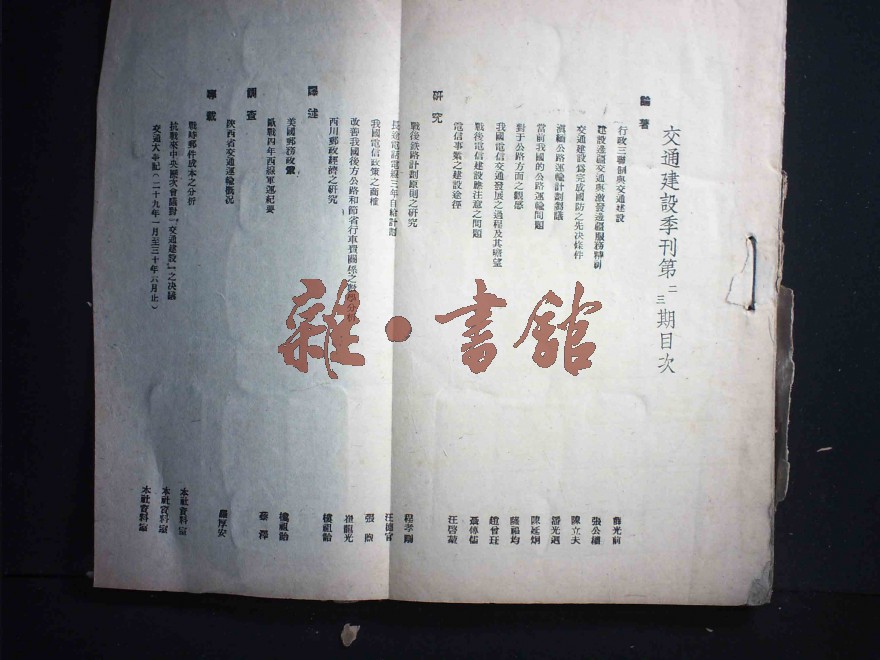 交通建設季刊第二三期目次
論著
行政三聯制與交通建設
建設邊疆交通與激發邊疆服務精神
交通建設為完成國防之先決條件
滇緬公路運輸計劃芻議
當前我國的公路運輸問題
對于公路方面之觀感
我國電信交通發展之過程及其瞻望
戰後電信建設應注意之問題
電信事業之建設途徑
研究
戰後鉄路計劃原則之研究
長途電話電線三年自給計劃
我國電信政策之商榷
改善我國後方公路和節省行車費關係之
西川郵政經濟之研究
譯述
美國郵務政策
歐戰四年西線軍運紀要
調查
陝西省交通運輸概況
專載
戰時郵件成本之分析
抗戰來中央歷次會議對「交通建設」之決議
交通大事記(二十九年一月至三十年六月止)
薛光前
張公權
陳立夫
潘光迥
陳延炯
薩福均
趙曾珏
聶傳儒
汪啓堃
程孝剛
汪德官
張煦
龍光
樓祖詒
樓祖詒
蔡澤
厚安
本社資料室
本社資料室
本社資料室
雜·書館